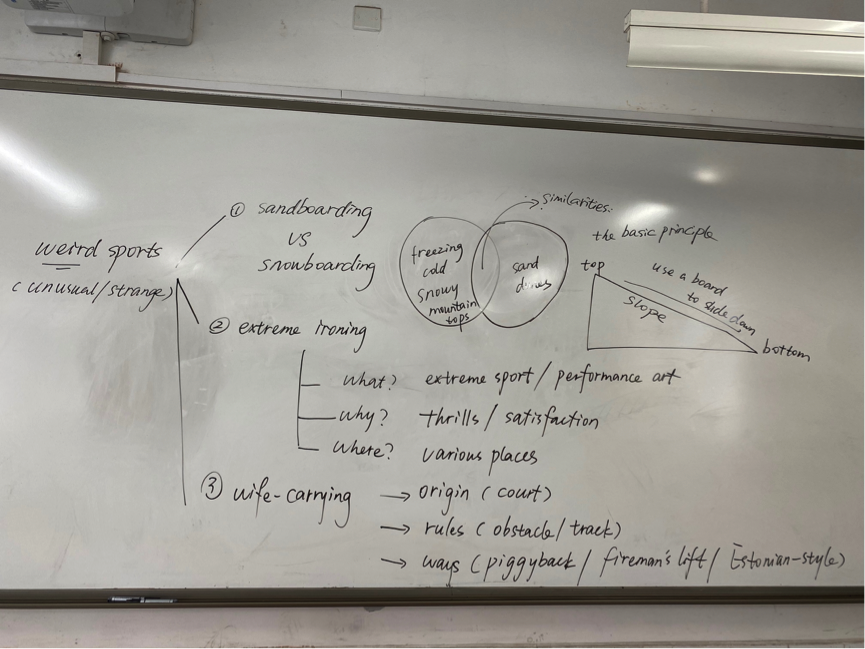 weird sports
(unusual/strange)
① sandboarding
VS
snowboarding
freezing
cold
snowy
mountain
tops
sand
dunes
similarities:
the basic principle
top
use a board
to slide down
slope
bottom
② extreme ironing
What? extreme sport / performance art
Why? thrills / satisfaction
Where? various places
③ wife-carrying → origin (court)
→ rules (obstacle/track)
→ ways (piggyback / fireman's lift / Estonian-style)